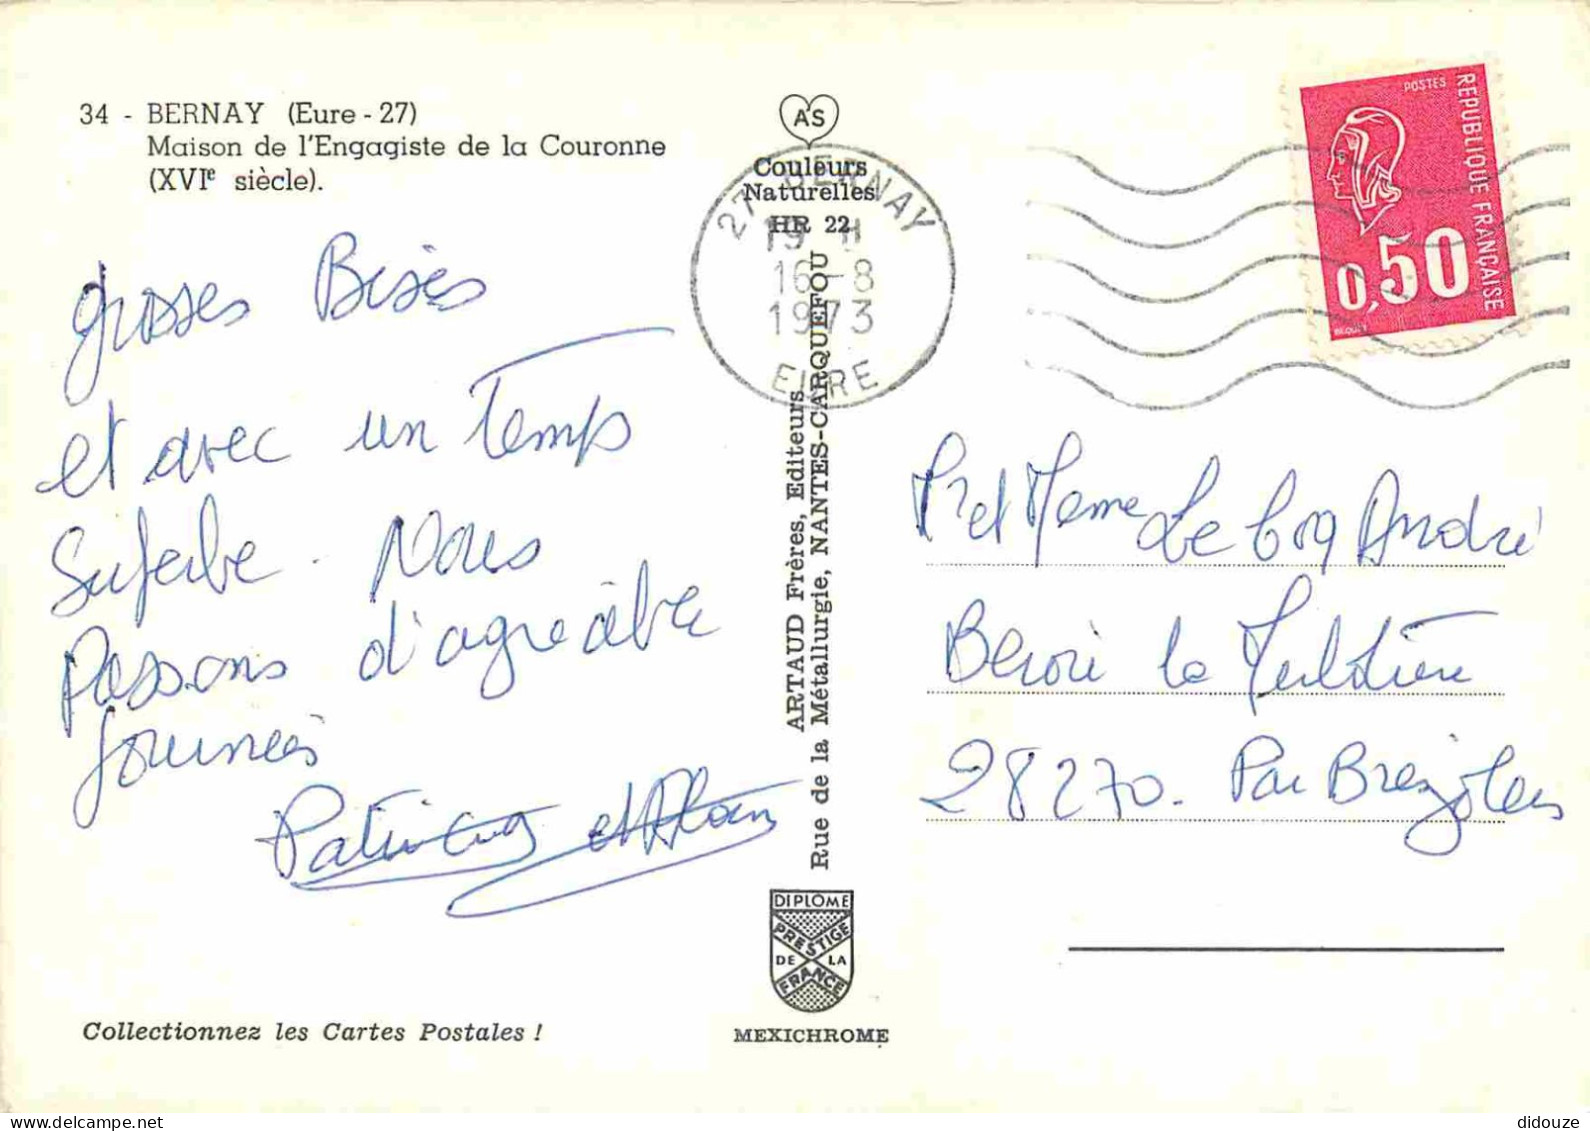 34 - BERNAY (Eure - 27)
Maison de l'Engagiste de la Couronne
(XVIe siècle).
Grosses Bises
et avec un Temps
Superbe. Nous
Passons d'agréable
journées
et Alain
Collectionnez les Cartes Postales !
AS
Couleurs
Naturelles
HR 22
27 BERNAY
19 H
16-8
1973
EURE
ARTAUD Frères, Editeurs
Rue de la Métallurgie, NANTES-CARQUEFOU
DIPLOME
PRESTIGE
DE LA
FRANCE
MEXICHROME
POSTES
REPUBLIQUE FRANÇAISE
0,50
Mr et Mme Le Coq André
Berou la Mulotière
28270. Par Brezolles
delcampe.net
didouze